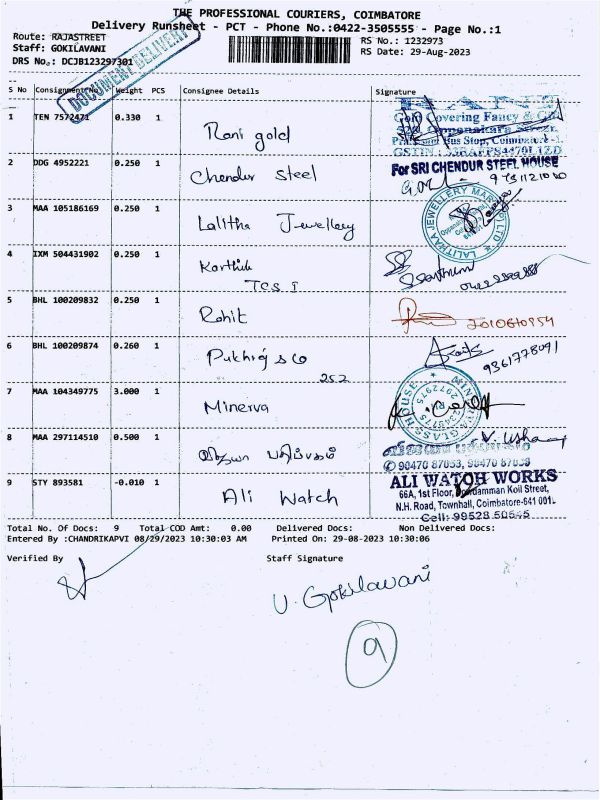 THE PROFESSIONAL COURIERS, COIMBATORE
Delivery Runsheet - PCT - Phone No.:0422-3505555 - Page No.:1
Route: RAJASTREET
RS No.: 1232973
Staff: GOKILAVANI
RS Date: 29-Aug-2023
DRS No.: DCJB123297301
DOCUMENT DELIVERY
S No Consignment No Weight PCS Consignee Details Signature
1 TEN 7572471 0.330 1 Rani gold
RANI
Gold Covering Fancy &
Oppanakara Street,
Bus Stop, Coimbatore-1.
2 DDG 4952221 0.250 1 Chendur Steel
For SRI CHENDUR STEEL HOUSE
3 MAA 105186169 0.250 1 Lalitha Jewellery
LALITHAA JEWELLERY MART (P) LTD
4 IXM 504431902 0.250 1 Karthik
TCS I
5 BHL 100209832 0.250 1 Rohit
6 BHL 100209874 0.260 1
252
9361778091
7 MAA 104349775 3.000 1 Minerva
MINERVA GLASS HOUSE
8 MAA 297114510 0.500 1 விஜயா பதிப்பகம்
விஜயா பதிப்பகம்
V. Usha
90470 87053, 90470 87058
9 STY 893581 -0.010 1 Ali Watch
ALI WATCH WORKS
66A, 1st Floor, Koil Street,
N.H. Road, Townhall, Coimbatore-641 001.
Cell: 99528 50545
Total No. Of Docs: 9 Total COD Amt: 0.00 Delivered Docs: Non Delivered Docs:
Entered By :CHANDRIKAPVI 08/29/2023 10:30:03 AM Printed On: 29-08-2023 10:30:06
Verified By Staff Signature
V. Gokilavani
9